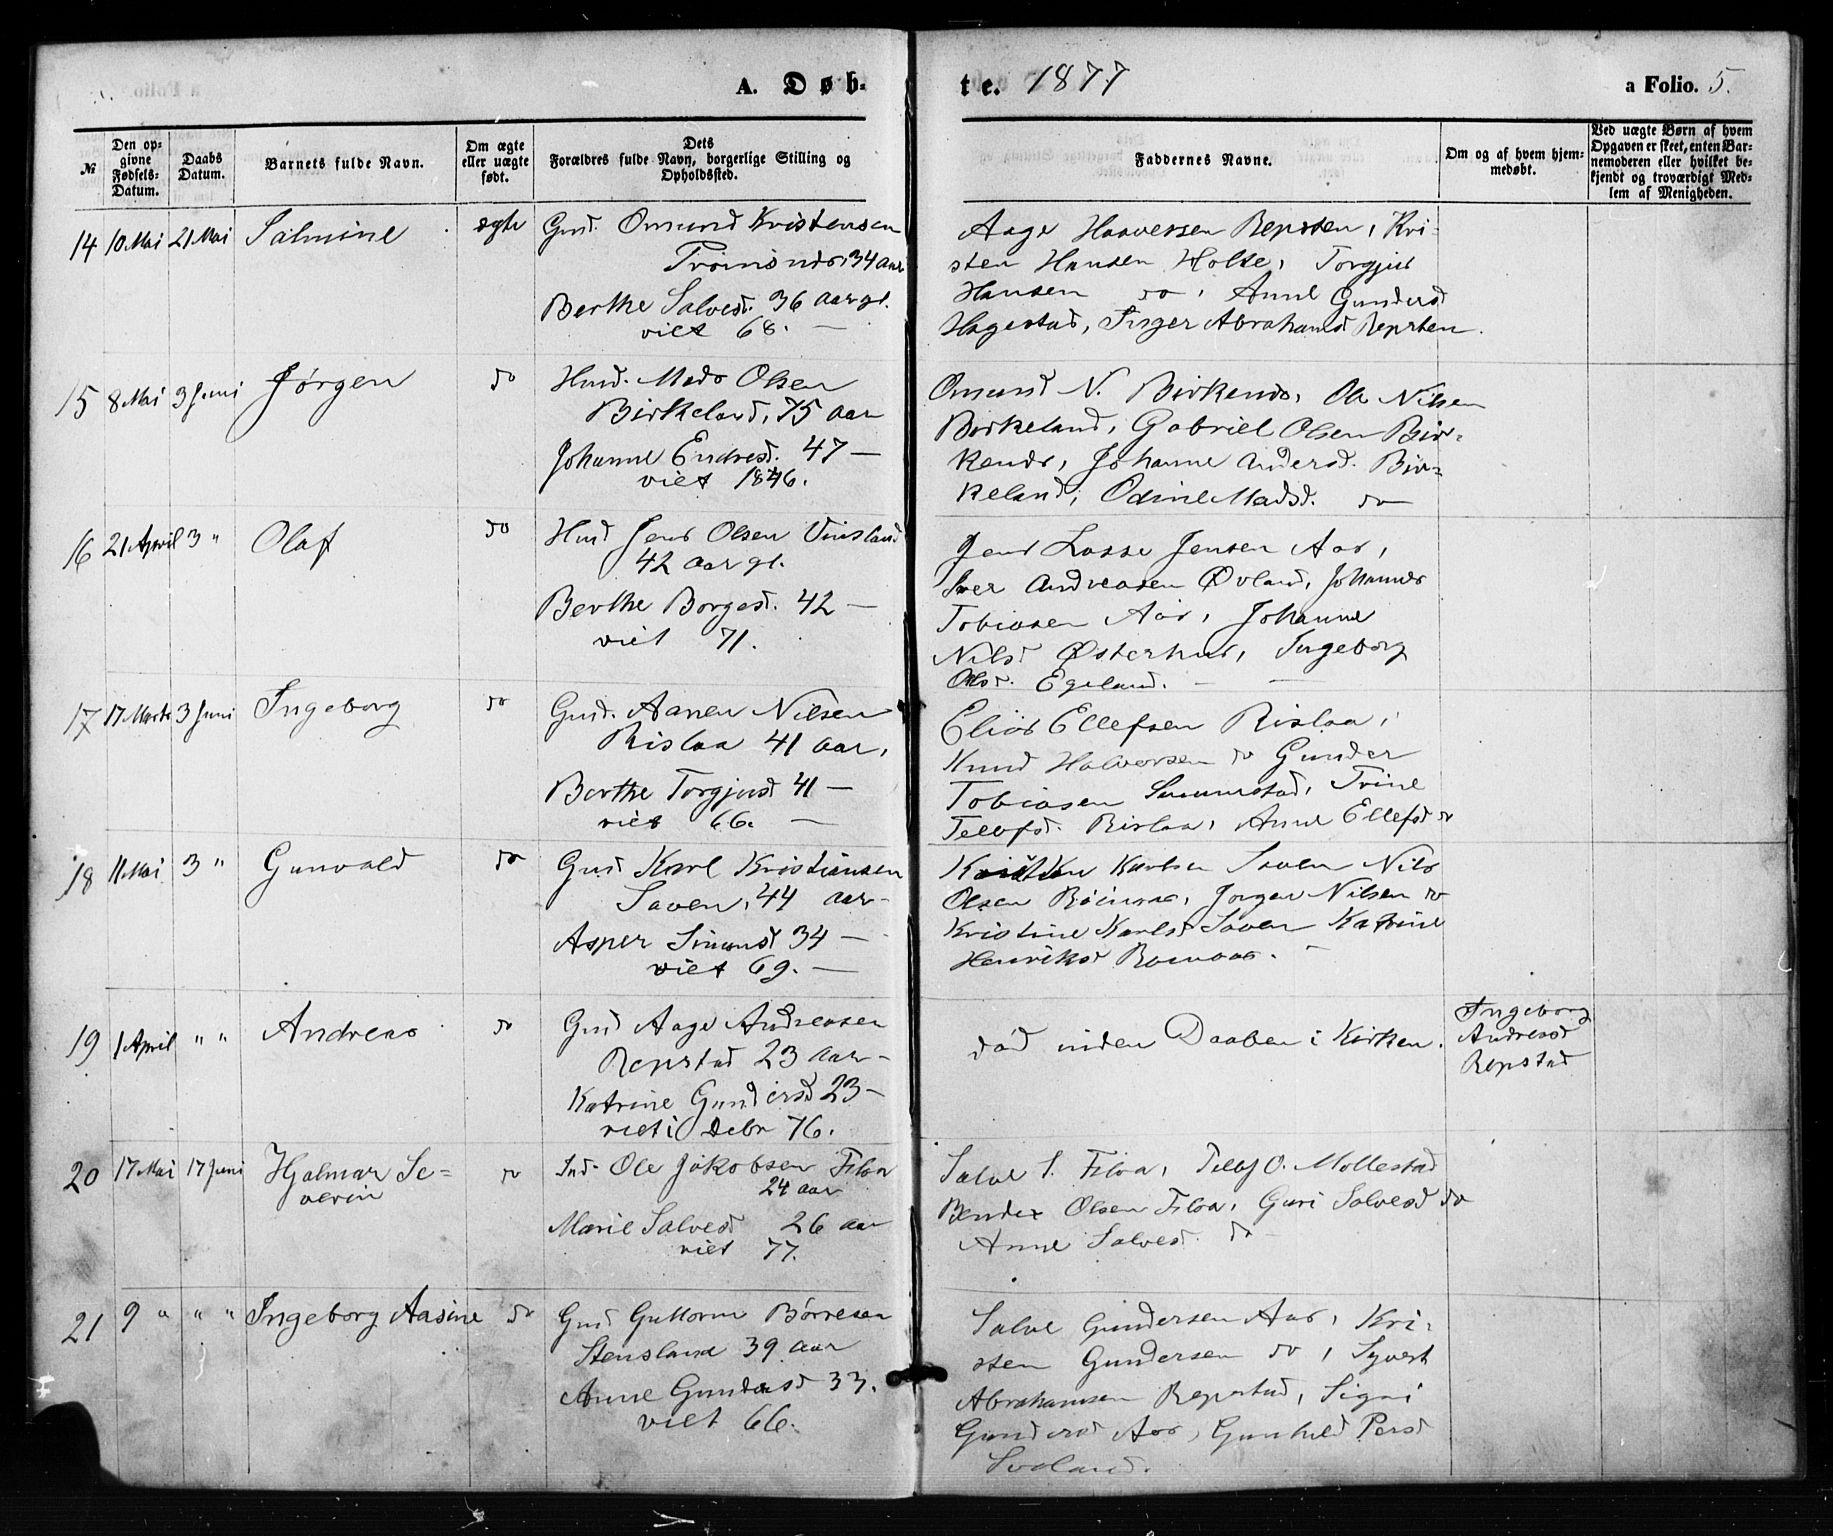 A. Døb-
te. 1877
a Folio. 5.
№
Den op-
givne
Fødsels-
Datum.
Daabs
Datum.
Barnets fulde Navn.
Om ægte
eller uægte
født.
Dets
Forældres fulde Navn, borgerlige Stilling og
Opholdssted.
Faddernes Navne.
Om og af hvem hjem-
medøbt.
Ved uægte Børn af hvem
Opgaven er skeet, enten Bar-
nemoderen eller hvilket be-
kjendt og troværdigt Med-
lem af Menigheden.
14 10 Mai 21 Mai Salmine ægte Gmd. Omund Kristensen
34 aar
Berthe Salvesd. 36 aar gl.
viet 68. —
Aage Haavorsen Repsten, Kri-
sten Hansen Holte, Torgjus
Hansen do, Anne Gundersd
Hagestad, Inger Abrahamsd Repsten.
15 8 Mai 3 Juni Jørgen do Husd. Mads Olsen
Birkeland, 75 aar
Johanne Endresd. 47 —
viet 1846.
Omund N. Birkenes, Ole Nilsen
Birkeland, Gabriel Olsen Bir-
kenes, Johanne Andersd. Bir-
keland, Odine Madsd. do
16 21 April 3 " Olaf do Husd Jens Olsen Vinsland
42 aar gl.
Berthe Borgesd. 42 —
viet 71.
Jens Lasse Jensen Aas,
Iver Andreasen Øvland, Johannes
Tobiasen Aas, Johanne
Nilsd Østerhus, Ingeborg
Olsd. Egeland. — —
17 17 Marts 3 Juni Ingeborg do Gmd. Aanen Nilsen
Rislaa 41 aar,
Berthe Torgjusd 41 —
viet 66. —
Elias Ellefsen Rislaa,
Knud Halvorsen do Gunder
Tobiasen Trine
Tellefsd. Rislaa, Anne Ellefsd do
18 11 Mai 3 " Gunvald do Gmd Karl Kristiansen
Saven, 44 aar-
Asper Simonsd 34 —
viet 69. —
Karlsen Saven Nils
Olsen Jørgen Nilsen do
Kristine Karlsd Saven Katrine
Henriksd
19 1 April " " Andreas do Gmd Aage Andreasen
Repstad 23 aar —
Katrine Gundersd 23 —
viet i Debr 76.
død inden Daaben i Kirken.
Ingeborg
Andreasd
Repstad
20 17 Mai 17 Juni Hjalmar Se-
verin
do Ind. Ole Jakobsen Fibva
24 aar
Marie Salvesd 26 aar
viet 77.
Salve S. Tellef O. Mollestad
Bendix Olsen Guri Salvesd do
Anne Salvesd. do
21 9 " " " Ingeborg Aasine do Gmd Guttorm Børresen
Stensland 39 aar
Anne Gundersd 33.
viet 66.
Salve Gundersen Aas, Kri-
sten Gundersen do, Syvert
Abrahamsen Repstad, Signi
Gundersd Aas, Gunhild Persd